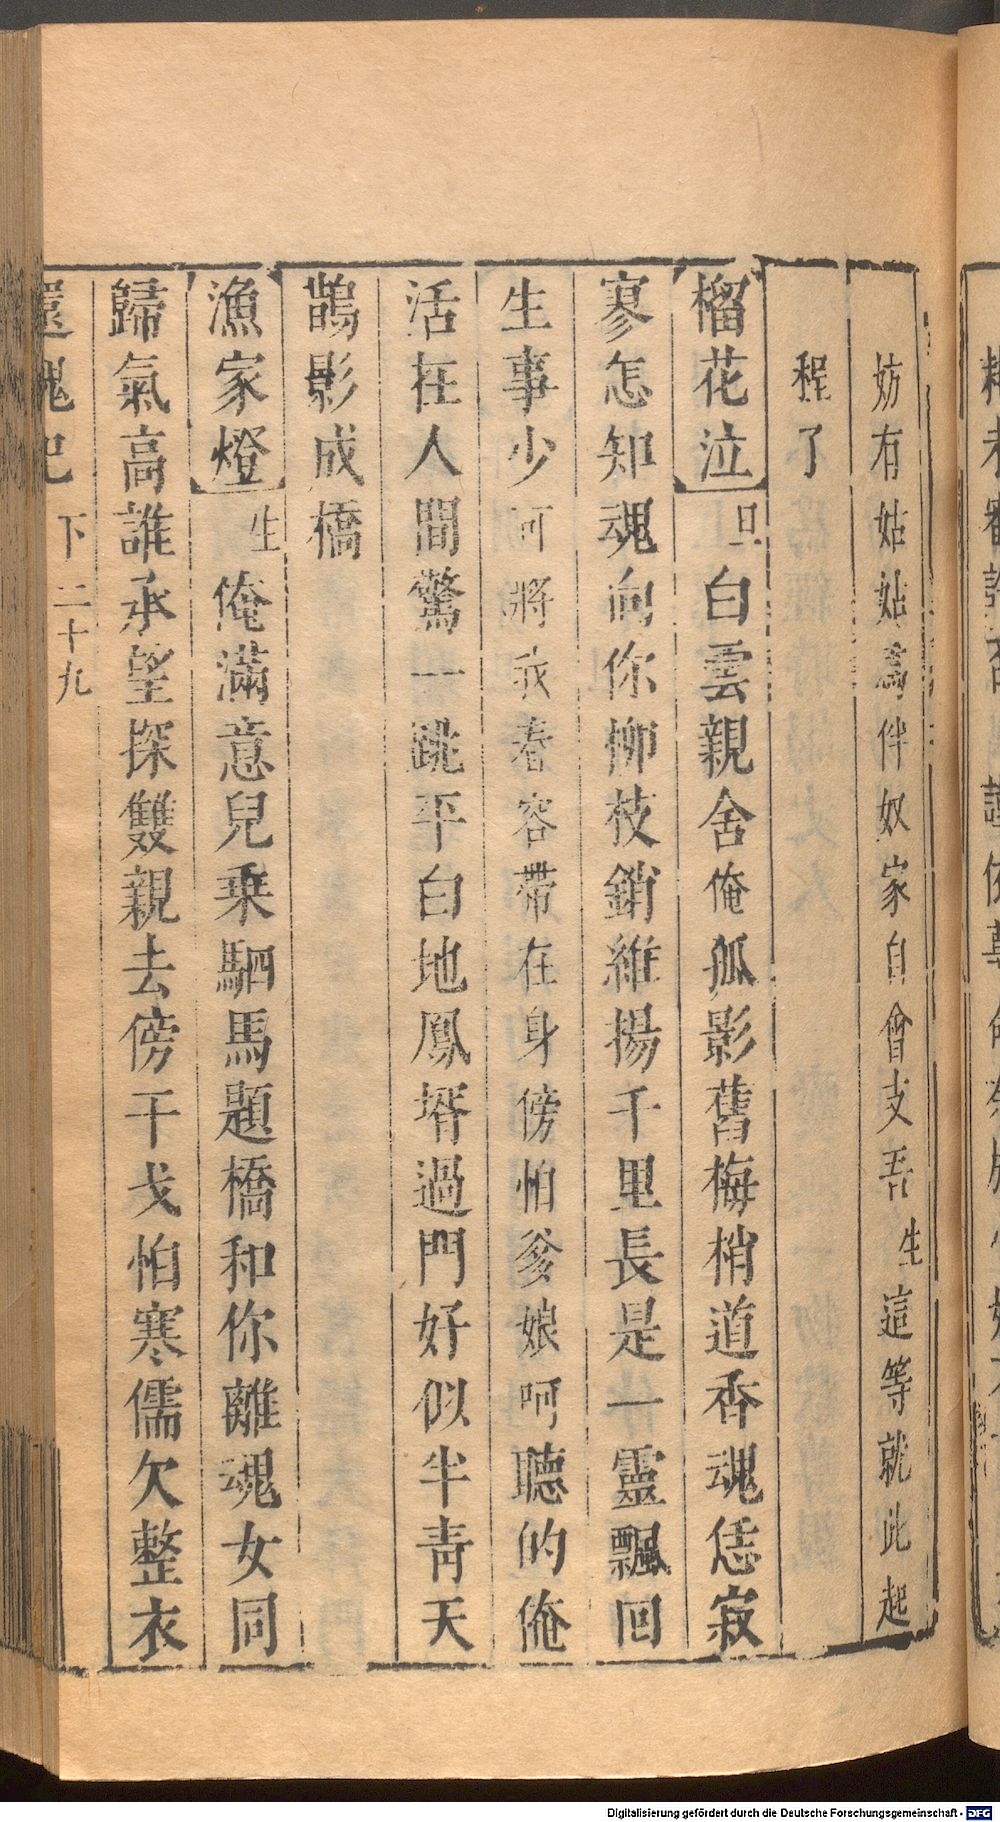 妨有姑姑為伴奴家自會支吾生這等就此起
程了
榴花泣旦白雲親舍俺孤影舊梅梢道香魂恁寂
寥怎知魂向你柳枝銷維揚千里長是一靈飄回
生事少何將我春容帶在身傍怕爹娘呵聽的俺
活在人間驚一跳平白地鳳壻過門好似半青天
鵲影成橋
漁家燈生俺滿意兒乗駟馬題橋和你離魂女同
歸氣高誰承望探雙親去傍干戈怕寒儒欠整衣
還魂記 下 二十九
Digitalisierung gefördert durch die Deutsche Forschungsgemeinschaft - DFG